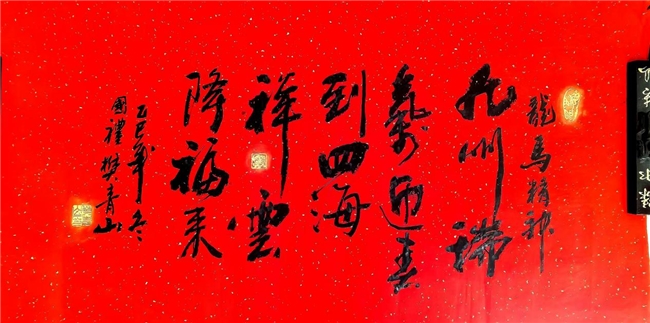 龍馬精神
九州瑞
氣迎春
到四海
祥雲
降福来
乙巳年冬
國禮樊青山